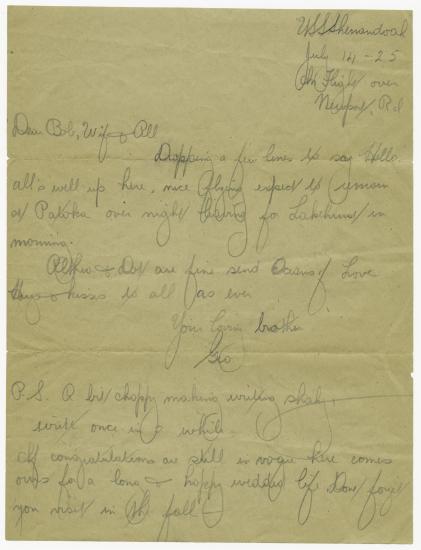 USS Shenandoah
July 14 - 25
In Flight over
Newport, R.I
Dear Bob, Wife & All
Dropping a few lines to say Hello.
all's well up here, nice flying expect to remain
at Patoka over night leaving for Lakehurst in
morning.
Althea & Dot are fine send Oceans of Love
Hugs & kisses to all as ever
Your loving brother
Geo
P.S. A bit choppy making writing shaky,
write once in a while.
If congratulations are still in vogue here comes
ours for a long & happy wedded life Dont forget
you visit in the fall